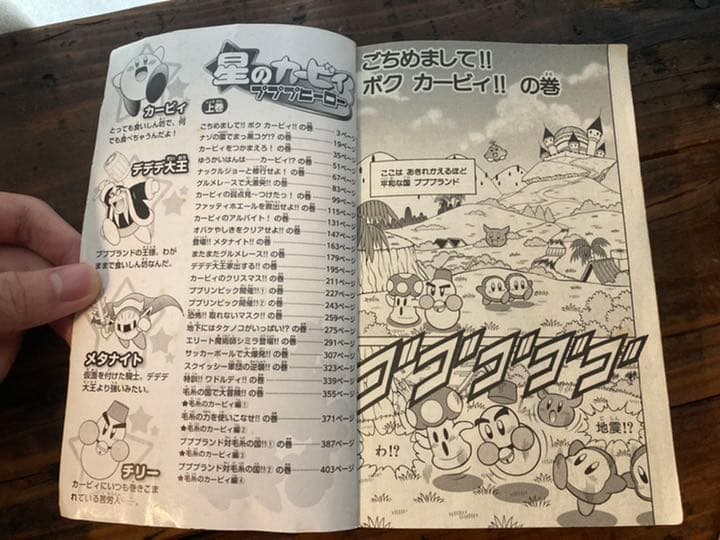 カービィ
とっても食いしん坊で、何
でも食べちゃうんだよ!
デデデ大王
プププランドの王様。わが
ままで食いしん坊なんだ。
メタナイト
仮面を付けた騎士。デデデ
大王より強いみたい。
チリー
カービィにいつも巻きこま
れている苦労人…。
星のカービィ
プププヒーロー
上巻
ごちめまして!! ボク カービィ!! の巻 3ページ
ナゾの雷でまっ黒コゲ!? の巻 19ページ
カービィをつかまえろ! の巻 35ページ
ゆうかいはんは……カービィ!? の巻 51ページ
ナックルジョーと修行せよ! の巻 67ページ
グルメレースで大激突!! の巻 83ページ
カービィの弱点見〜つけたっ! の巻 99ページ
ファッティホエールを救出せよ!! の巻 115ページ
カービィのアルバイト! の巻 131ページ
オバケやしきをクリアせよ!! の巻 147ページ
登場!! メタナイト!! の巻 163ページ
またまたグルメレース!! の巻 179ページ
デデデ大王家出する!! の巻 195ページ
カービィのクリスマス!! の巻 211ページ
プププリンピック開催!!① の巻 227ページ
プププリンピック開催!!② の巻 243ページ
恐怖!! 取れないマスク!! の巻 259ページ
地下にはタケノコがいっぱい!? の巻 275ページ
エリート魔術師シミラ登場!! の巻 291ページ
サッカーボールで大爆発!! の巻 307ページ
スクイッシー軍団の逆襲!! の巻 323ページ
特訓!! ワドルディ!! の巻 339ページ
毛糸の国で大冒険!! の巻 355ページ
★毛糸のカービィ編①
毛糸の力を使いこなせ!! の巻 371ページ
★毛糸のカービィ編②
プププランド対毛糸の国!!① の巻 387ページ
★毛糸のカービィ編③
プププランド対毛糸の国!!② の巻 403ページ
★毛糸のカービィ編④
ごちめまして!!
ボク カービィ!! の巻
ここは あきれかえるほど
平和な国 プププランド
ゴゴゴゴゴ
地震!?
わ!?